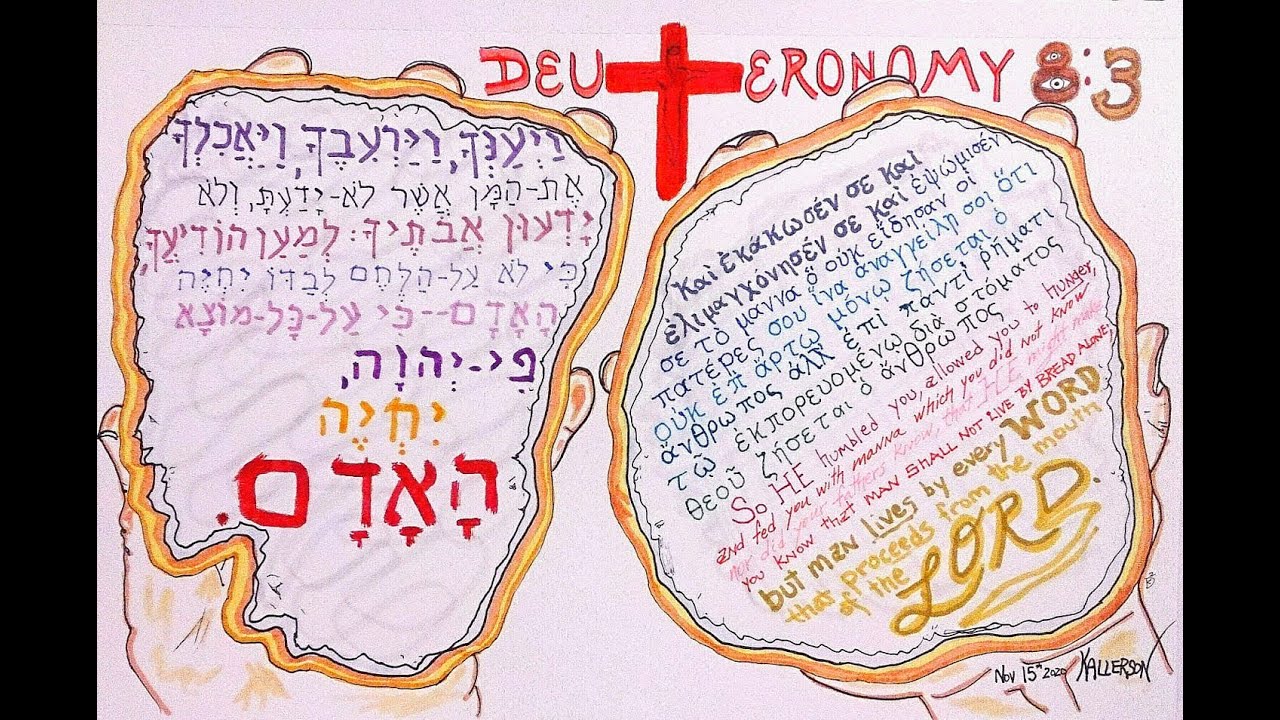 DEUTERONOMY 8:3
וַיְעַנְּךָ, וַיַּרְעִבֶךָ, וַיַּאֲכִלְךָ
אֶת-הַמָּן אֲשֶׁר לֹא-יָדַעְתָּ, וְלֹא
יָדְעוּן אֲבֹתֶיךָ: לְמַעַן הוֹדִיעֲךָ,
כִּי לֹא עַל-הַלֶּחֶם לְבַדּוֹ יִחְיֶה
הָאָדָם--כִּי עַל-כָּל-מוֹצָא
פִי-יְהוָה,
יִחְיֶה
הָאָדָם.
καὶ ἐκάκωσέν σε καὶ
ἐλιμαγχόνησέν σε καὶ ἐψώμισέν
σε τὸ μαννα ὃ οὐκ εἴδησαν οἱ
πατέρες σου ἵνα ἀναγγείλῃ σοι ὅτι
οὐκ ἐπ ἄρτῳ μόνῳ ζήσεται ὁ
ἄνθρωπος ἀλλ ἐπὶ παντὶ ῥήματι
τῷ ἐκπορευομένῳ διὰ στόματος
θεοῦ ζήσεται ὁ ἄνθρωπος
So HE humbled you, allowed you to hunger,
and fed you with manna which you did not know
nor did your fathers know, that HE might make
you know that MAN SHALL NOT LIVE BY BREAD ALONE;
but man lives by every WORD
that proceeds from the mouth
of the LORD.
Nov 15th 2020 KALLERSON